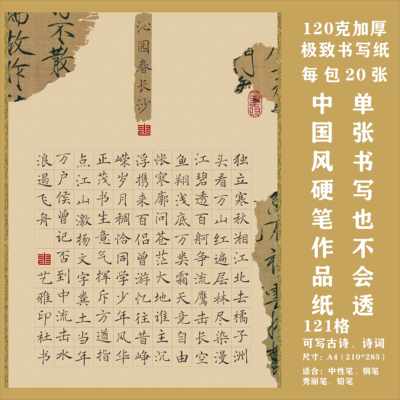 沁园春长沙
独立寒秋湘江北去橘子洲
头看万山红遍层林尽染漫
江碧透百舸争流鹰击长空
鱼翔浅底万类霜天竞自由
怅寥廓问苍茫大地谁主沉
浮携来百侣曾游忆往昔峥
嵘岁月稠恰同学少年风华
正茂书生意气挥斥方遒指
点江山激扬文字粪土当年
万户侯曾记否到中流击水
浪遏飞舟
艺雅印社书
120克加厚
极致书写纸
每包20张
单张书写也不会透
中国风硬笔作品纸
121格
可写古诗、诗词
尺寸：A4（210*285）
适合：中性笔、钢笔
秀丽笔、铅笔